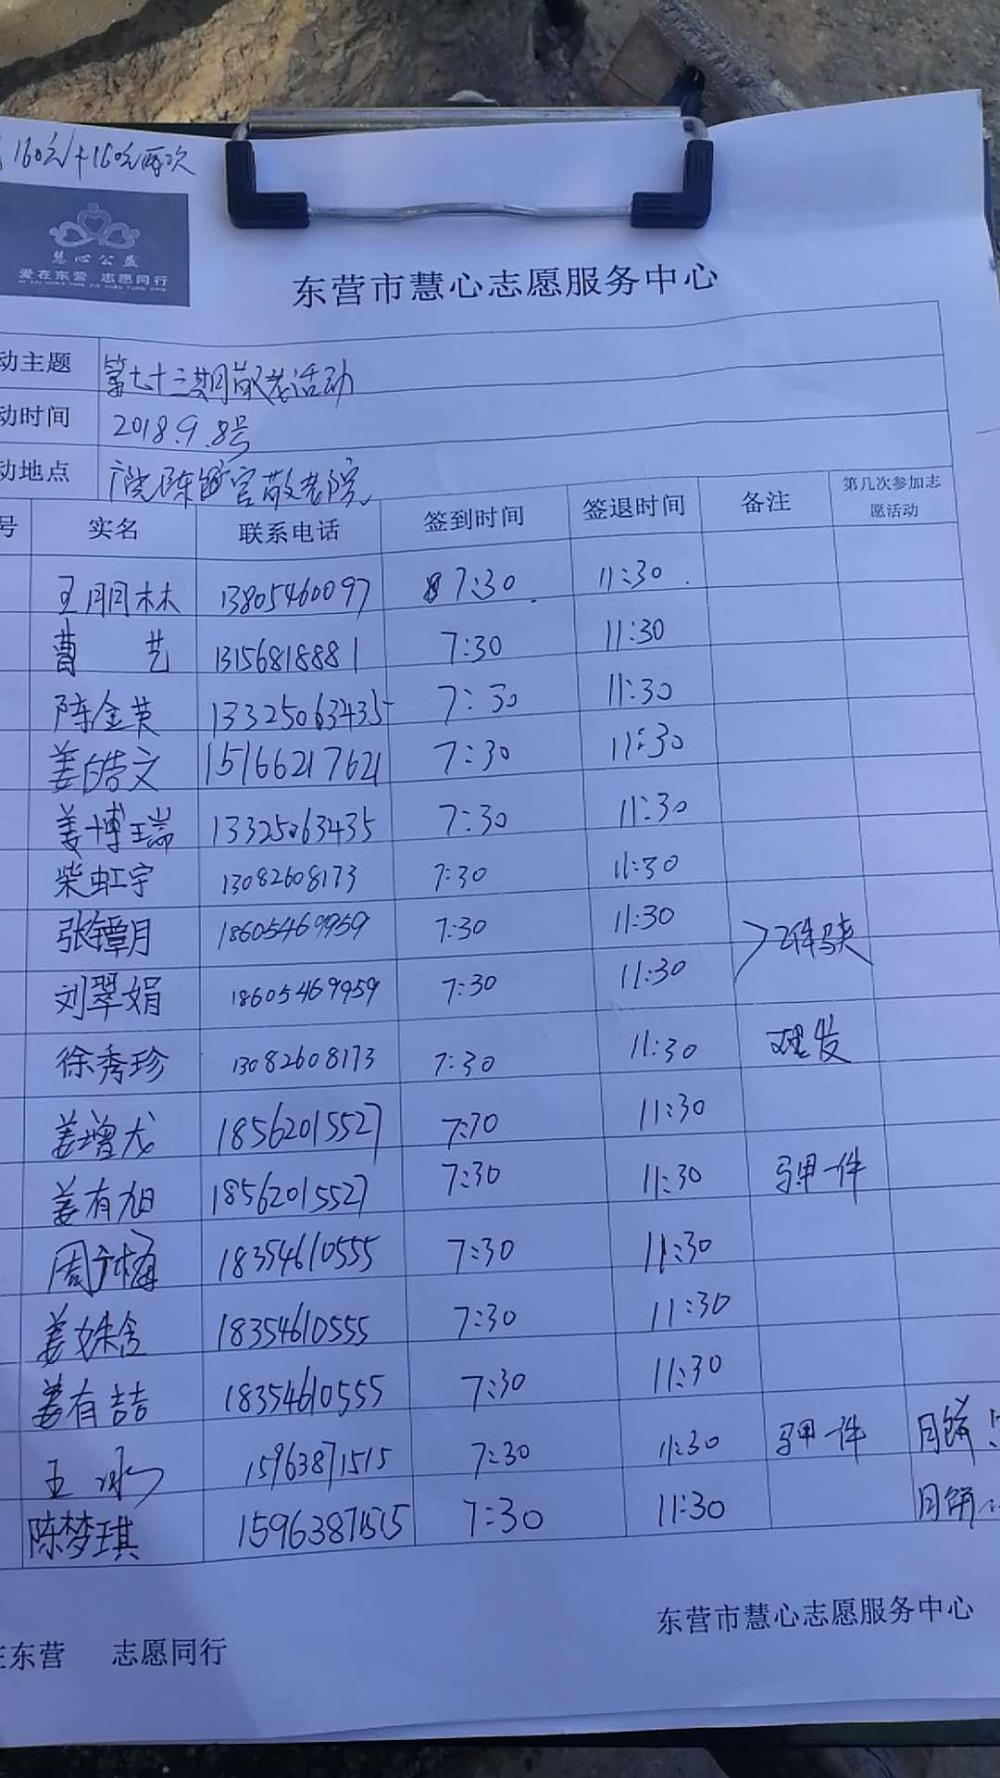 160元+160元两次
慧心公益
爱在东营 志愿同行
东营市慧心志愿服务中心
动主题 第七十三期敬老活动
动时间 2018.9.8号
动地点 陈官敬老院
号 实名 联系电话 签到时间 签退时间 备注 第几次参加志愿活动
王朋林 13805460097 7:30 11:30
曹艺 13156818881 7:30 11:30
陈金英 13325063435 7:30 11:30
姜皓文 15166217621 7:30 11:30
姜博瑞 13325063435 7:30 11:30
柴虹宇 13082608173 7:30 11:30
张镡月 18605469959 7:30 11:30
刘翠娟 18605469959 7:30 11:30 2件马夹
徐秀珍 13082608173 7:30 11:30 理发
姜增龙 18562015527 7:30 11:30
姜有旭 18562015527 7:30 11:30 马甲一件
周梅 18354610555 7:30 11:30
姜姝含 18354610555 7:30 11:30
姜有喆 18354610555 7:30 11:30
王冰 15963871515 7:30 11:30 马甲一件 月饼
陈梦琪 15963871515 7:30 11:30 月饼
东营市慧心志愿服务中心
在东营 志愿同行